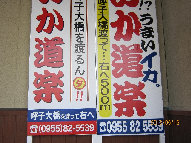 !?うまいイカ。
呼子大橋渡って?右へ500m
いか道楽
☎(0955)82-5539
呼子大橋を渡るんダ!!
いか道楽
呼子大橋を渡って右へ
☎(0955)82-5539